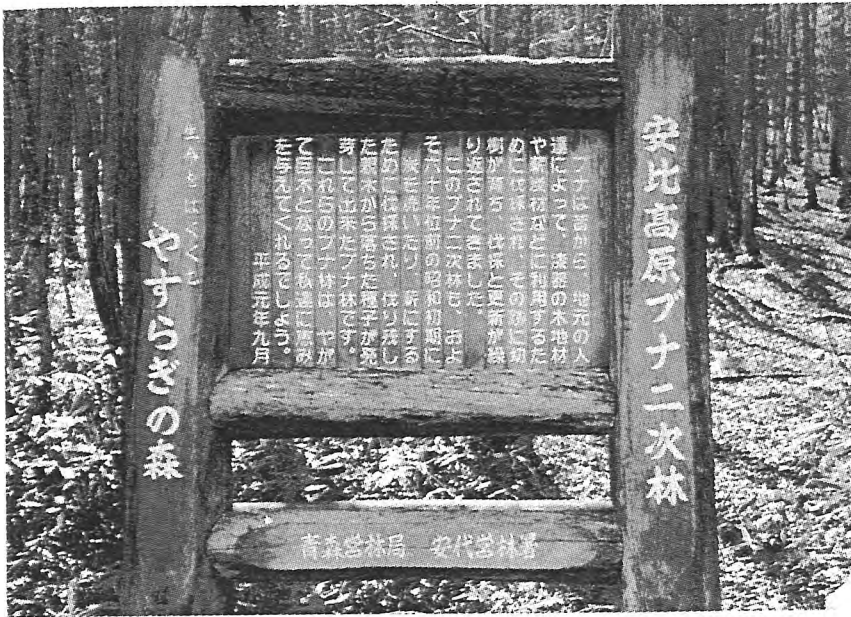 安比高原ブナ二次林
ブナは昔から、地元の人
達によって、漆器の木地材
や薪炭材などに利用するた
めに伐採され、その後に幼
樹が育ち、伐採と更新が繰
り返されて来ました。
このブナ二次林も、およ
そ六十年位前の昭和初期に
炭を焼いたり、薪にする
ために伐採され、伐り残し
た親木から落ちた種子が発
芽して出来たブナ林です。
これらのブナ林は、やが
て巨木となって私達に恵み
を与えてくれるでしょう。
平成元年九月
やすらぎの森
青森営林局 安代営林署